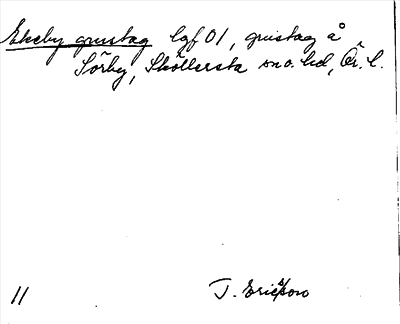 Ekeby grustag lgf 01, grustag å
Sörby, Sköllersta sn o. hd, Ör. l.
11
T. Ericsson